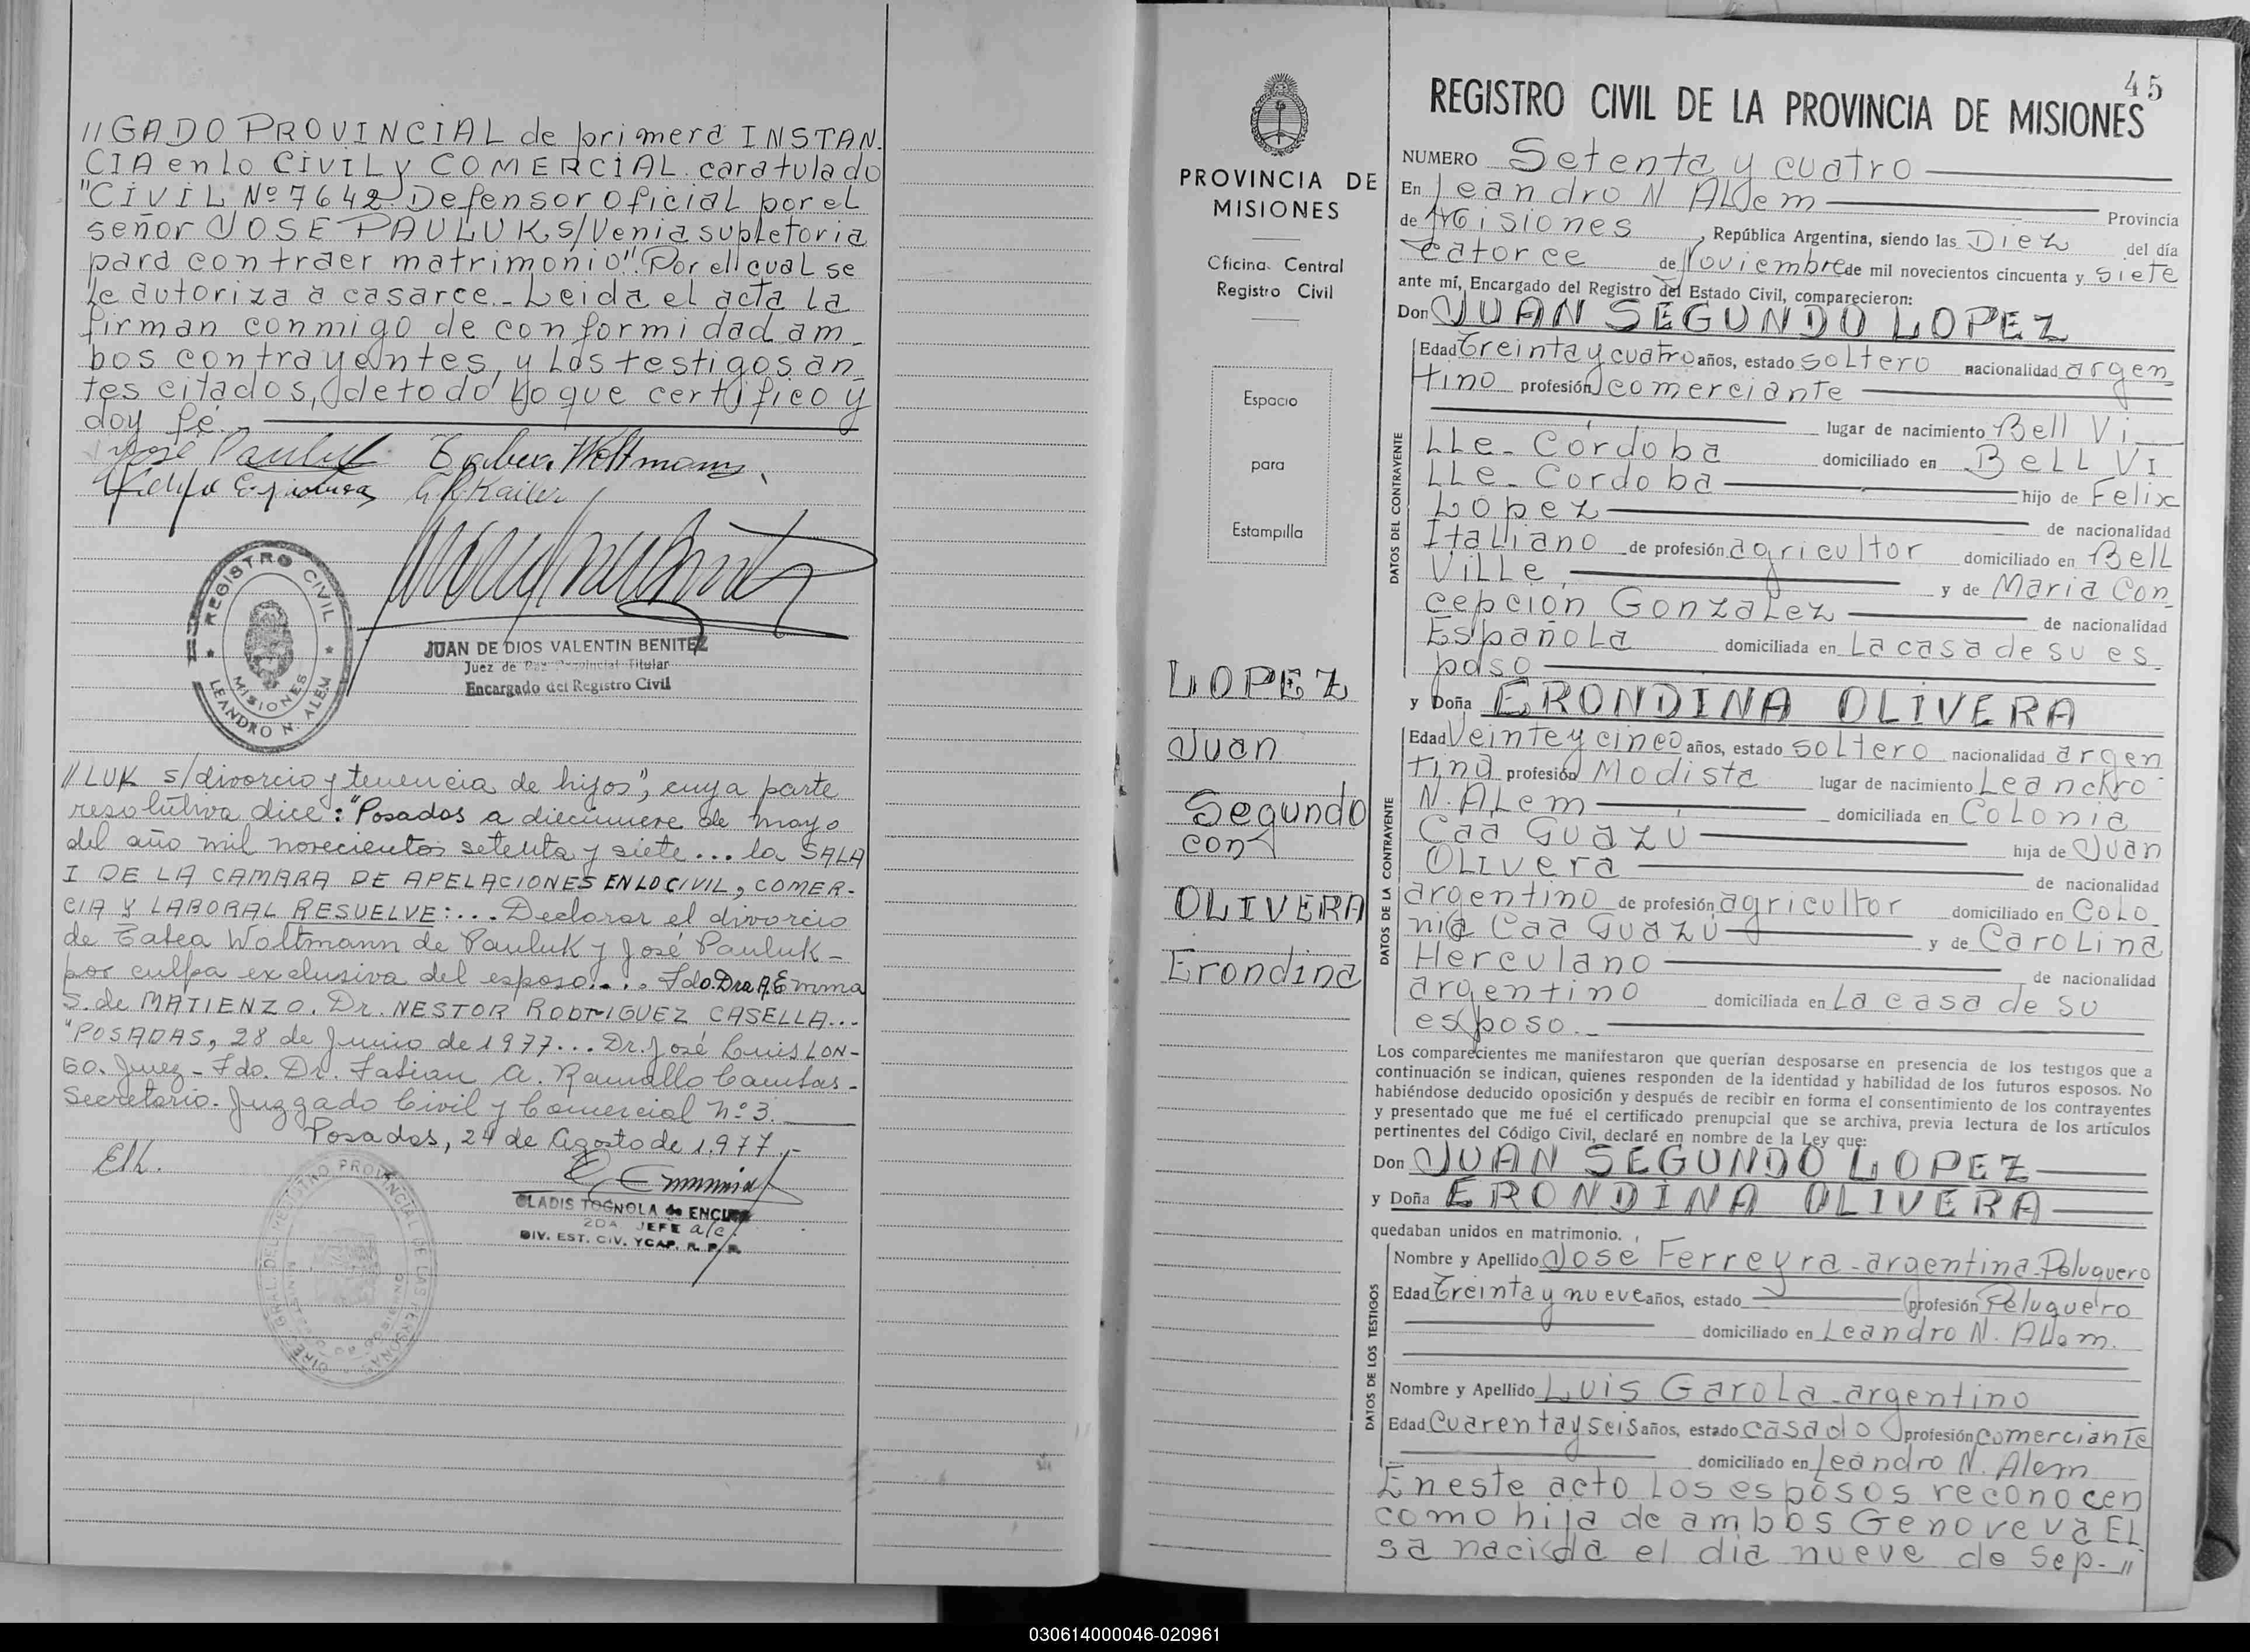 //GADO PROVINCIAL de primera INSTAN.
CIA en lo CIVIL y COMERCIAL caratulado
"CIVIL Nº 7642 Defensor Oficial por el
señor JOSE PAULUK s/Venia supletoria
para contraer matrimonio". Por el cual se
le autoriza a casarce.- Leida el acta la
firman conmigo de conformidad am_
bos contrayentes, y los testigos an_
tes citados, de todo lo que certifico y
doy fé.-
José Pauluk Woltmann
G R Kailer
REGISTRO CIVIL
MISIONES
LEANDRO N. ALEM
JUAN DE DIOS VALENTIN BENITEZ
Juez de Paz Provincial Titular
Encargado del Registro Civil
//LUK s/divorcio y tenencia de hijos", cuya parte
resolutiva dice: "Posadas a diecinueve de mayo
del año mil novecientos setenta y siete... la SALA
I DE LA CAMARA DE APELACIONES EN LO CIVIL, COMER-
CIA Y LABORAL RESUELVE:... Declarar el divorcio
de Woltmann de Pauluk y José Pauluk-
por culpa exclusiva del esposo.... Fdo. Dra A. Emma
S. de MATIENZO. Dr. NESTOR RODRIGUEZ CASELLA...
"POSADAS, 28 de Junio de 1977... Dr. José Luis LON-
GO. Juez - Fdo. Dr. Fabian A. Ramallo
Secretario. Juzgado Civil y Comercial nº 3.
Posadas, 24 de Agosto de 1.977.-
GLADIS TOGNOLA de
2DA. JEFE a/c.
DIV. EST. CIV. YCAP. R. P. P.
PROVINCIA DE
MISIONES
Oficina Central
Registro Civil
Espacio
para
Estampilla
LOPEZ
Juan
Segundo
con
OLIVERA
Erondina
45
REGISTRO CIVIL DE LA PROVINCIA DE MISIONES
NUMERO Setenta y cuatro
En Leandro N ALem Provincia
de Misiones, República Argentina, siendo las Diez del día
Catorce de Noviembre de mil novecientos cincuenta y siete
ante mí, Encargado del Registro del Estado Civil, comparecieron:
Don JUAN SEGUNDO LOPEZ
DATOS DEL CONTRAYENTE
Edad Treinta y cuatro años, estado soltero nacionalidad argen
tino profesión comerciante
lugar de nacimiento Bell Vi_
LLe_ Córdoba domiciliado en BeLL VI
LLe_ Cordoba hijo de Felix
Lopez de nacionalidad
Italiano de profesión agricultor domiciliado en Bell
Ville, y de Maria Con_
cepción Gonzalez de nacionalidad
Española domiciliada en La casa de su es_
poso
y Doña ERONDINA OLIVERA
DATOS DE LA CONTRAYENTE
Edad Veinte y cinco años, estado soltero nacionalidad argen
tina profesión Modista lugar de nacimiento Leandro
N. ALem domiciliada en Colonia
Caa Guazú hija de Juan
Olivera de nacionalidad
argentino de profesión agricultor domiciliado en Colo
nia Caa Guazú y de Carolina
Herculano de nacionalidad
argentino domiciliada en La casa de su
esposo._
Los comparecientes me manifestaron que querían desposarse en presencia de los testigos que a
continuación se indican, quienes responden de la identidad y habilidad de los futuros esposos. No
habiéndose deducido oposición y después de recibir en forma el consentimiento de los contrayentes
y presentado que me fué el certificado prenupcial que se archiva, previa lectura de los artículos
pertinentes del Código Civil, declaré en nombre de la Ley que:
Don JUAN SEGUNDO LOPEZ
y Doña ERONDINA OLIVERA
quedaban unidos en matrimonio.
DATOS DE LOS TESTIGOS
Nombre y Apellido José Ferreyra-argentina-Peluquero
Edad Treinta y nueve años, estado profesión Peluquero
domiciliado en Leandro N. ALem.
Nombre y Apellido Luis Garola-argentino
Edad Cuarenta y seis años, estado casado profesión comerciante
domiciliado en Leandro N. Alem
En este acto los esposos reconocen
como hija de ambos Genoveva EL
sa nacida el dia nueve de Sep-//
030614000046-020961